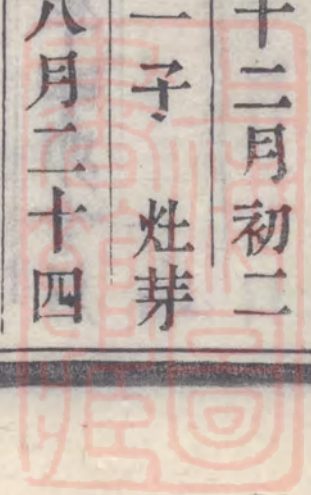 十二月初二
一子 灶芽
八月二十四